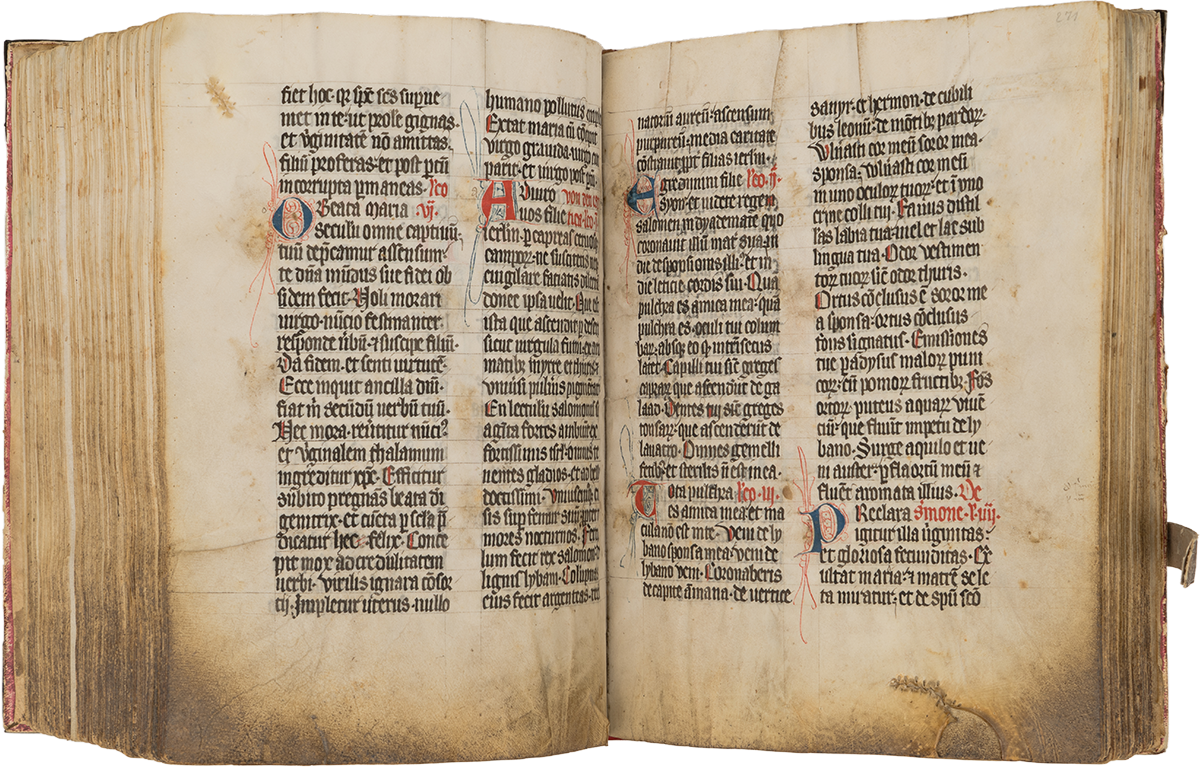 fiet hoc· qr spe scs supue
niet in te· ut prole gignas·
et v̾ginitatē nō amittas·
filiū proferas· et post ptū
incorrupta pmaneas· Leo
O Beata Maria vj·
seculū omne captiuū·
tuū dep̄camur assensum·
te dn̄a mūdus sue fidei ob
sidem fecit· Noli morari
uirgo· nūcio festinanter·
responde ūbū· ⁊ suscipe filiū·
Da fidem· et senti uirtutē·
Ecce inquit ancilla dn̄i·
fiat m̄ secūdū uerbū tuū·
Nec mora· reūtitur nūci᷒
et v̾ginalem thalamum
ingreditur xp̄c· Efficitur
subito pregnās beata dī
genitrix· et cūcta p scla p̄
dicatur· hec· felix· Conce
pte mox ad credulitatem
uerbi· virilis ignara cōsor
tij· Impletur uterus· nullo
humano pollutus
Extat maria
virgo grauida· uirgo
parit· et uirgo post ptū·
A Diuro von
uos filie Leo
ierlm· p capreas ceruosq
camporꝝ· ne suscitetis neq
euigilare faciatis dilectā
donec ipsa uelit· Que est
ista que ascendit p desertū
sicut uirgula fumi· ex aro
matibꝫ myrre et thuris·
vniuersi pulueris pigmentarij
En lectulū salomonis
agīta fortes ambiūt ex
fortissimis isrl· omnes te
nentes gladios· et ad bella
doctissimi· vniuscuiusqꝫ
sis sup femur suū ppter
mores nocturnos· Fercu
lum fecit rex salomon de
lignis lybani· Columpnas
eius fecit argenteas· recli
271
natoriū aureū· ascensum
purpureū· media caritate
cōstrauit ppt̄ filias ierlm·
E gredimini filie Leo·ij·
syon· et uidete regem
salomonē in dyademate quo
coronauit illū mat̄ sua· in
die desponsionis illi᷒· et in
die leticie cordis sui· Qua
pulchra es amica mea· qua
pulchra es· oculi tui colum
barꝝ· absqꝫ eo qꝫ intrīsecus
latet· Capilli tui sic̄ greges
caprarꝝ que ascendūt de ga
laad· Dentes tui sic̄ greges
tonsarꝝ· que ascenderūt de
lauacro· Omnes gemelli
fetibꝫ· et sterilis n̄ est in ea·
T Ota pulchra Leo·iij·
es amica mea· et ma
cula nō est in te· Veni de ly
bano sponsa mea· veni de
lybano veni· Coronaberis
de capite amana· de vertice
sanyr· et hermon· de cubili
bus leonū· de mōtibꝫ pardorꝝ·
Vlnāsti cor meū soror mea·
sponsa· vlnāsti cor meū
in uno oculorꝫ tuorꝝ· et ī uno
crine colli tui· Fauus distil
lās labia tua· mel et lac sub
lingua tua· Odor vestimen
torꝝ tuorꝝ sic̄ odor thuris·
Ortus cōclusus ē soror me
a sponsa· ortus cōclusus
fons signatus· Emissiones
tue padysus malorꝝ puni
corꝝ· cū pomorꝝ fructibꝫ· Fōs
ortorꝝ· puteus aquarꝝ viuē
ciū· que fluūt impetu de ly
bano· Surge aquilo et ue
ni auster· pfla ortū meū ⁊
fluēt aromata illius· De
P Reclara Smone·R·iiij
igitur illa v̾ginitas·
et gloriosa fecunditas· Ex
ultat maria· ⁊ matrē se le
ta miratur· et de spū scō